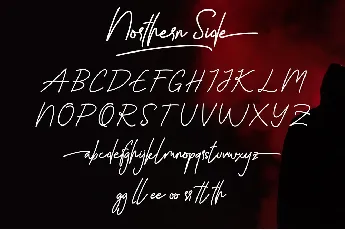 Northern Side
ABCDEFGHIJKLM
NOPQRSTUVWXYZ
abcdefghijklmnopqrstuvwxyz
gg ll ee oo rr tl th